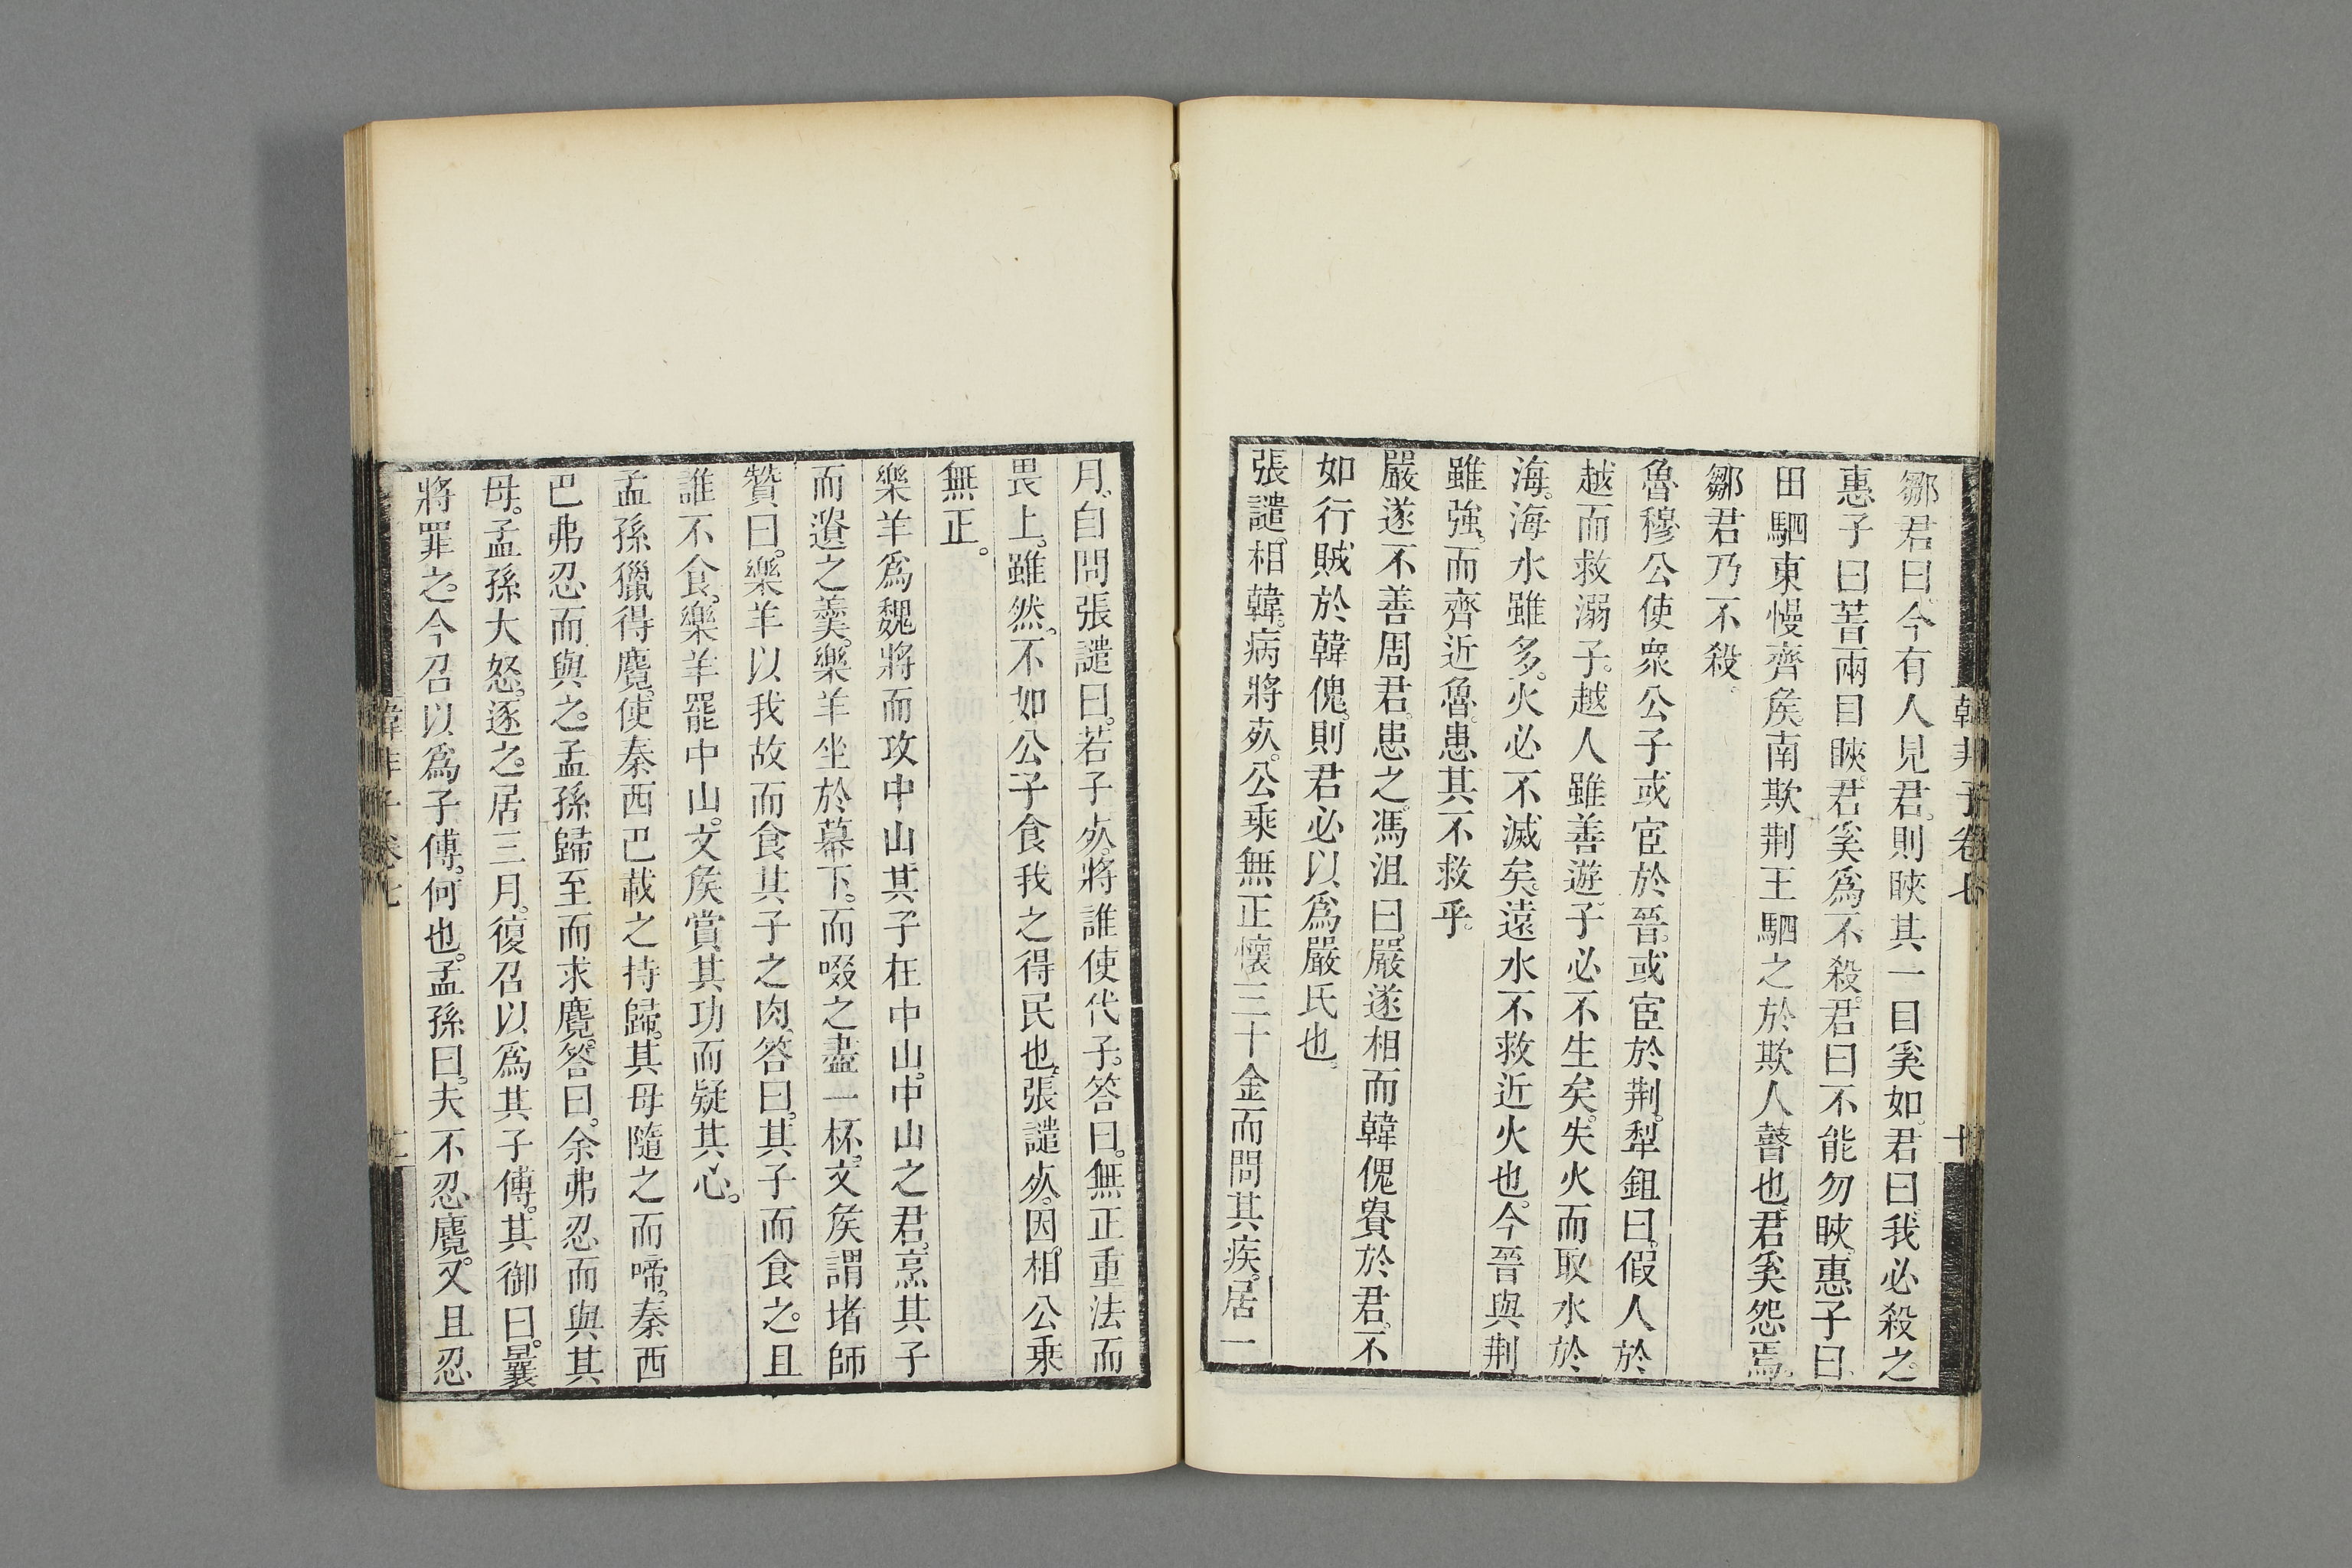 鄒君曰。今有人見君。則䀹其一目奚如。君曰。我必殺之。
惠子曰。瞽兩目䀹。君奚爲不殺。君曰。不能勿䀹。惠子曰。
田駟東慢齊矦。南欺荆王。駟之於欺人瞽也。君奚怨焉。
鄒君乃不殺。
魯穆公使衆公子或宦於晉。或宦於荆。犁鉏曰。假人於
越而救溺子。越人雖善遊。子必不生矣。失火而取水於
海。海水雖多。火必不滅矣。遠水不救近火也。今晉與荆
雖強。而齊近魯。患其不救乎。
嚴遂不善周君。患之。馮沮曰。嚴遂相而韓傀貴於君。不
如行賊於韓傀。則君必以爲嚴氏也。
張譴相韓。病將死。公乘無正懷三十金而問其疾。居一
韓非子卷七
十
月。自問張譴曰。若子死。將誰使代子。答曰。無正重法而
畏上。雖然。不如公子食我之得民也。張譴死。因相公乘
無正。
樂羊爲魏將而攻中山。其子在中山。中山之君。烹其子
而遺之羹。樂羊坐於幕下。而啜之盡一杯。文矦謂堵師
贊曰。樂羊以我故而食其子之肉。答曰。其子而食之。且
誰不食。樂羊罷中山。文矦賞其功而疑其心。
孟孫獵得麑。使秦西巴載之持歸。其母隨之而啼。秦西
巴弗忍而與之。孟孫歸至而求麑。答曰。余弗忍而與其
母。孟孫大怒。逐之。居三月。復召以爲其子傅。其御曰。曩
將罪之。今召以爲子傅。何也。孟孫曰。夫不忍麑。又且忍
韓非子卷七